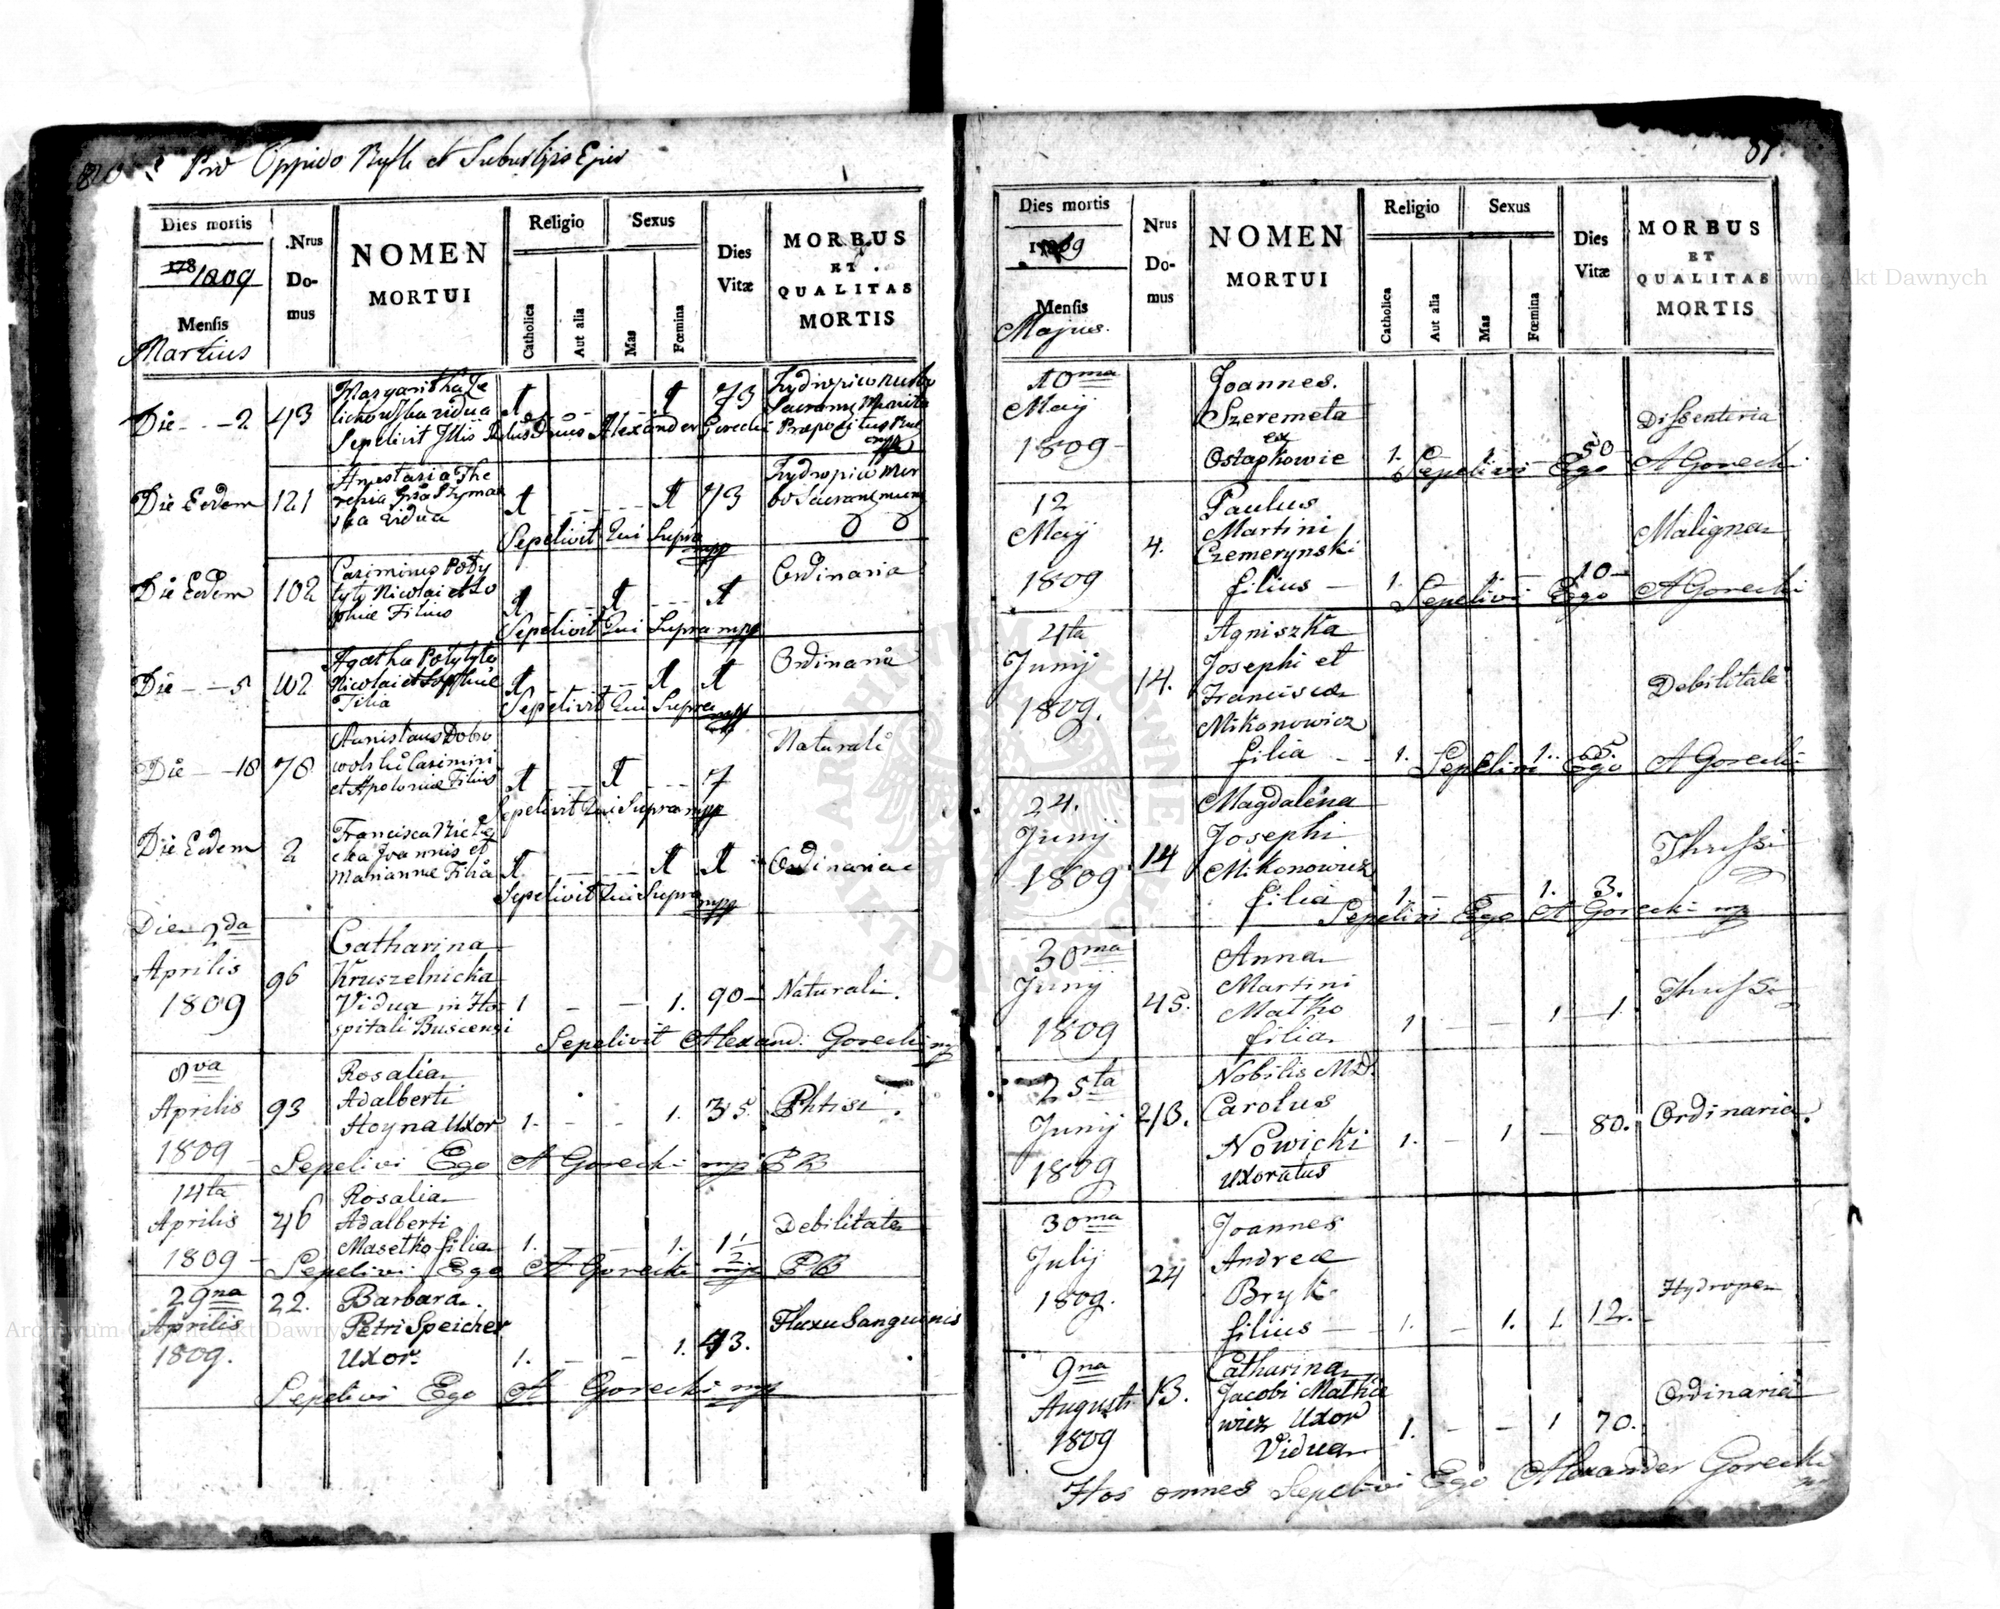 80
Pro Oppido Busk et Suburbijs Ejus
Dies mortis
178 1809
Mensis
Martius
Nrus
Do-
mus
NOMEN
MORTUI
Religio
Catholica
Aut alia
Sexus
Mas
Fœmina
Dies
Vitæ
MORBUS
ET
QUALITAS
MORTIS
Die - - - 2
43
Margaritha
vidua
1 - - 1 73
Hydropico morbo
Sepelivit Illos Alexander Gorecki
Die Eodem
121
Anastasia The
Vidua
1 - - 1 73
Hydropico mor
bo
Sepelivit Qui Supra mpp
Die Eodem
102
Casimirus Poty
Nicolai et So
phiæ Filius
1 - 1 - - 1
Ordinaria
Sepelivit Qui Supra mpp
Die - - 5
102
Agatha
Nicolai et Sophiæ
Filia
1 - - 1 1
Ordinaria
Sepelivit Qui Supra mpp
Die - - 18
78
Stanislaus Dobro
wolski Casimiri
et Apoloniæ Filius
1 - 1 - - 7
Naturali
Sepelivit Qui Supra mpp
Die Eodem
2
Francisca
Joannis et
Mariannæ Filia
1 - - 1 1
Ordinaria
Sepelivit Qui Supra mpp
Die 2da
Aprilis
1809
96
Catharina
Kruszelnicka
Vidua in Ho
spitali Buscensi
1 - - 1. 90 -
Naturali.
Sepelivit Alexand: Gorecki mp
8va
Aprilis
1809
93
Rosalia
Adalberti
Hoyna Uxor
1. - - 1. 35.
Phtisi.
Sepelivi Ego A Gorecki mp PB
14ta
Aprilis
1809 -
46
Rosalia
Adalberti
Masetko filia
1. - 1. 1 1/2
Debilitate
Sepelivi Ego A Gorecki mp PB
29na
Aprilis
1809.
22.
Barbara
Petri Speicher
Uxor
1. - - 1. 43.
Fluxu Sanguinis
Sepelivi Ego A Gorecki mp
81
Dies mortis
1809
Mensis
Majus.
Nrus
Do-
mus
NOMEN
MORTUI
Religio
Catholica
Aut alia
Sexus
Mas
Fœmina
Dies
Vitæ
MORBUS
ET
QUALITAS
MORTIS
10ma
Maij
1809 -
Joannes.
Szeremeta
ex
Ostapkowie
1. 1. 50
Dissenteria
Sepelivi Ego A Gorecki
12
Maij
1809
4.
Paulus
Martini
Czemerynski
filius -
1. 10 -
Maligna
Sepelivi Ego A Gorecki
4ta
Junij
1809.
14.
Agniszka
Josephi et
Franciscæ
Mikonowicz
filia - -
1. 1. 6.
Debilitate
Sepelivi Ego A Gorecki
24.
Junij
1809
14
Magdalena
Josephi
Mikonowicz
filia
1. - 1. 3.
Sepelivi Ego A Gorecki mp
30ma
Junij
1809
45.
Anna
Martini
Matko
filia
1 - - 1 - 1.
25ta
Junij
1809
213.
Nobilis MD.
Carolus
Nowicki
Uxoratus
1. - 1 - 80.
Ordinaria.
30ma
Julij
1809.
24
Joannes
Andreæ
Bryk
filius -
1. - 1. 1. 12.
Hydrope
9na
Augusti
1809
13.
Catharina
Jacobi Matkie
wicz Uxor
Vidua
1. - - 1 70.
Ordinaria
Hos omnes Sepelivi Ego Alexander Gorecki
mp
Archiwum Główne Akt Dawnych
Archiwum Główne Akt Dawnych
ARCHIWUM GŁÓWNE AKT DAWNYCH